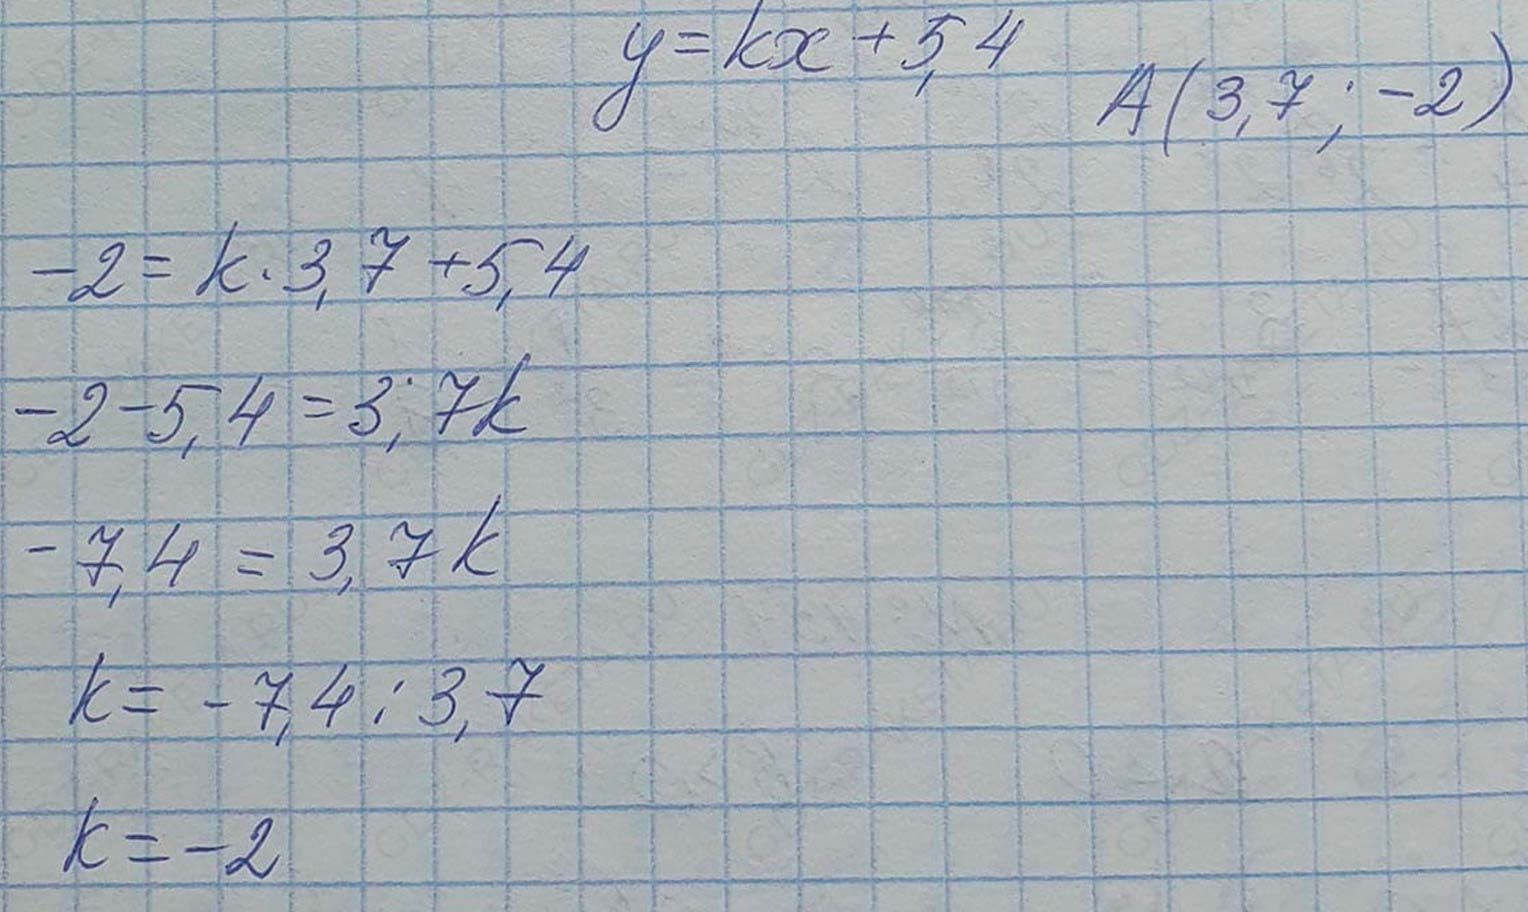 y=kx+5,4
A(3,7;-2)
-2=k·3,7+5,4
-2-5,4=3,7k
-7,4=3,7k
k=-7,4:3,7
k=-2